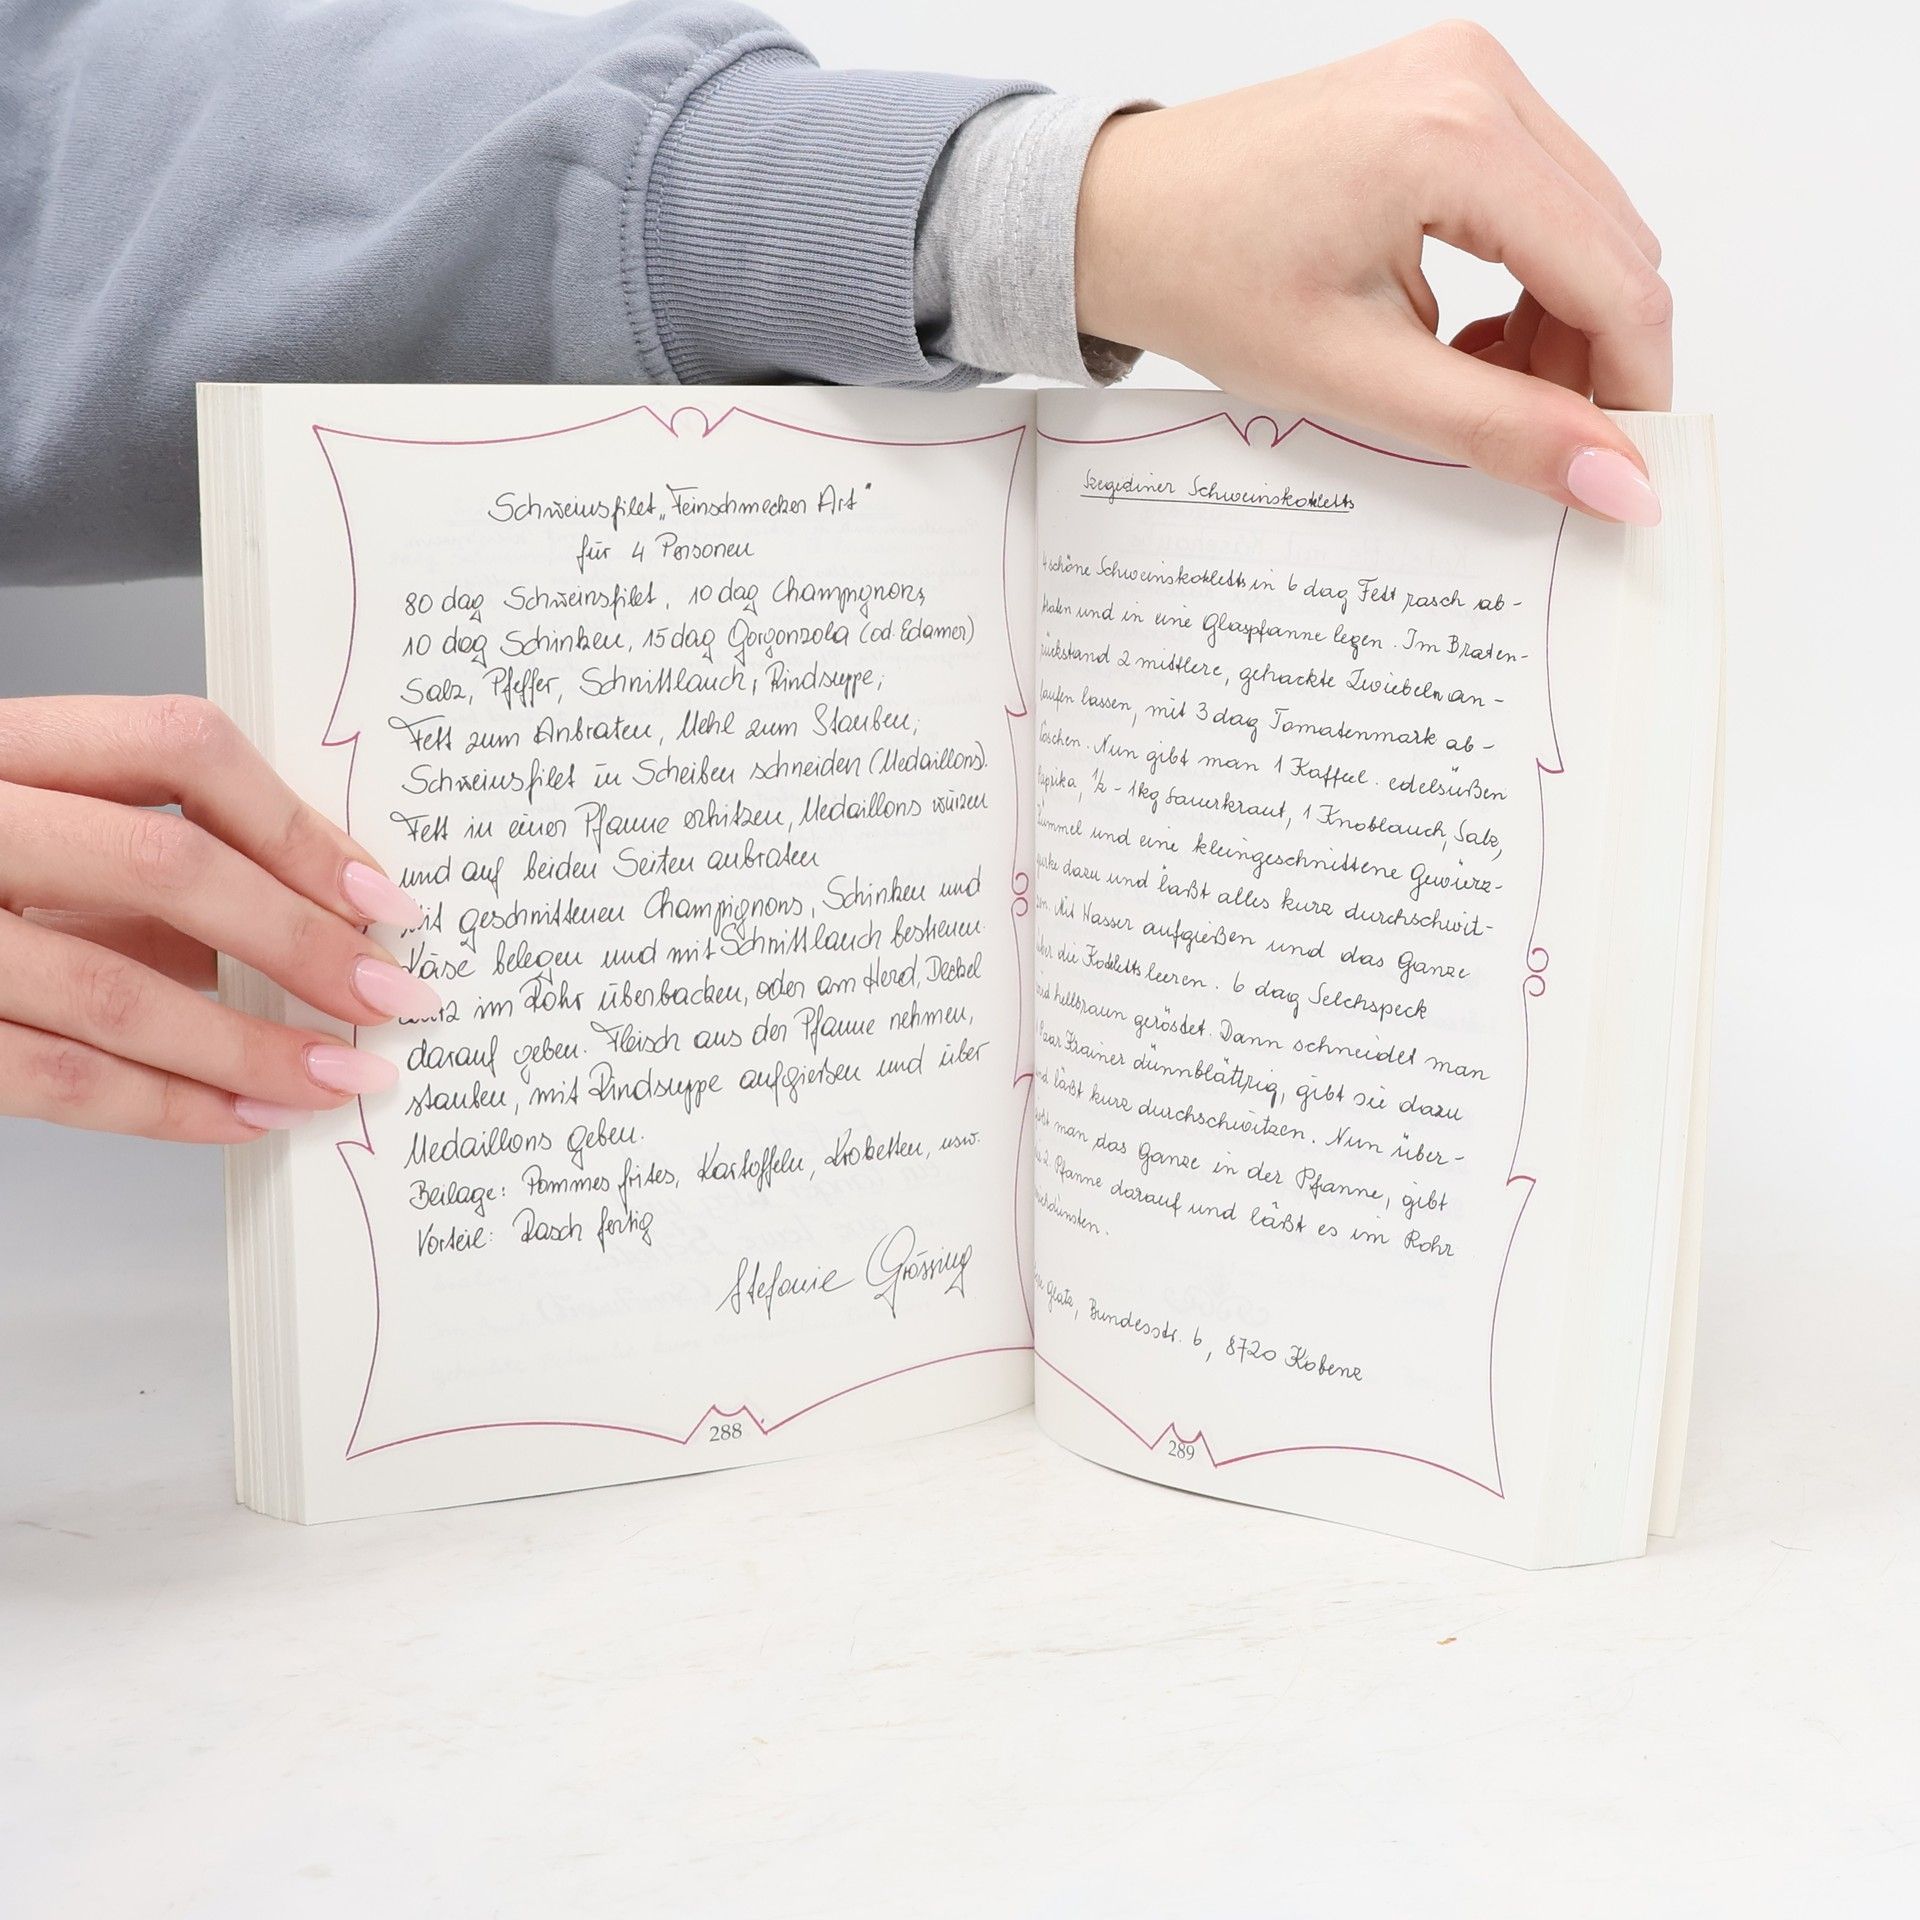 Schweinsfilet „Feinschmecker Art"
für 4 Personen
80 dag Schweinsfilet, 10 dag Champignons,
10 dag Schinken, 15 dag Gorgonzola (od. Edamer)
Salz, Pfeffer, Schnittlauch, Rindsuppe,
Fett zum Anbraten, Mehl zum Stauben,
Schweinsfilet in Scheiben schneiden (Medaillons).
Fett in einer Pfanne erhitzen, Medaillons würzen
und auf beiden Seiten anbraten
mit geschnittenen Champignons, Schinken und
Käse belegen und mit Schnittlauch bestreuen.
im Rohr überbacken, oder am Herd, Deckel
darauf geben. Fleisch aus der Pfanne nehmen,
stauben, mit Rindsuppe aufgießen und über
Medaillons geben.
Beilage: Pommes frites, Kartoffeln, Kroketten, usw.
Vorteil: Rasch fertig
Stefanie Grössing
288
Szegediner Schweinskotletts
4 schöne Schweinskotletts in 6 dag Fett rasch ab-
braten und in eine Glaspfanne legen. Im Braten-
rückstand 2 mittlere, gehackte Zwiebeln an-
laufen lassen, mit 3 dag Tomatenmark ab-
löschen. Nun gibt man 1 Kaffeel. edelsüßen
Paprika, ½ - 1kg Sauerkraut, 1 Knoblauch, Salz,
Kümmel und eine kleingeschnittene Gewürz-
gurke dazu und läßt alles kurz durchschwit-
zen. Mit Wasser aufgießen und das Ganze
über die Kotletts leeren. 6 dag Selchspeck
wird hellbraun geröstet. Dann schneidet man
1 Paar Krainer dünnblättrig, gibt sie dazu
und läßt kurz durchschwitzen. Nun über-
gießt man das Ganze in der Pfanne, gibt
die 2. Pfanne darauf und läßt es im Rohr
weichdünsten.
Glatz, Bundesstr. 6, 8720 Kobenz
289